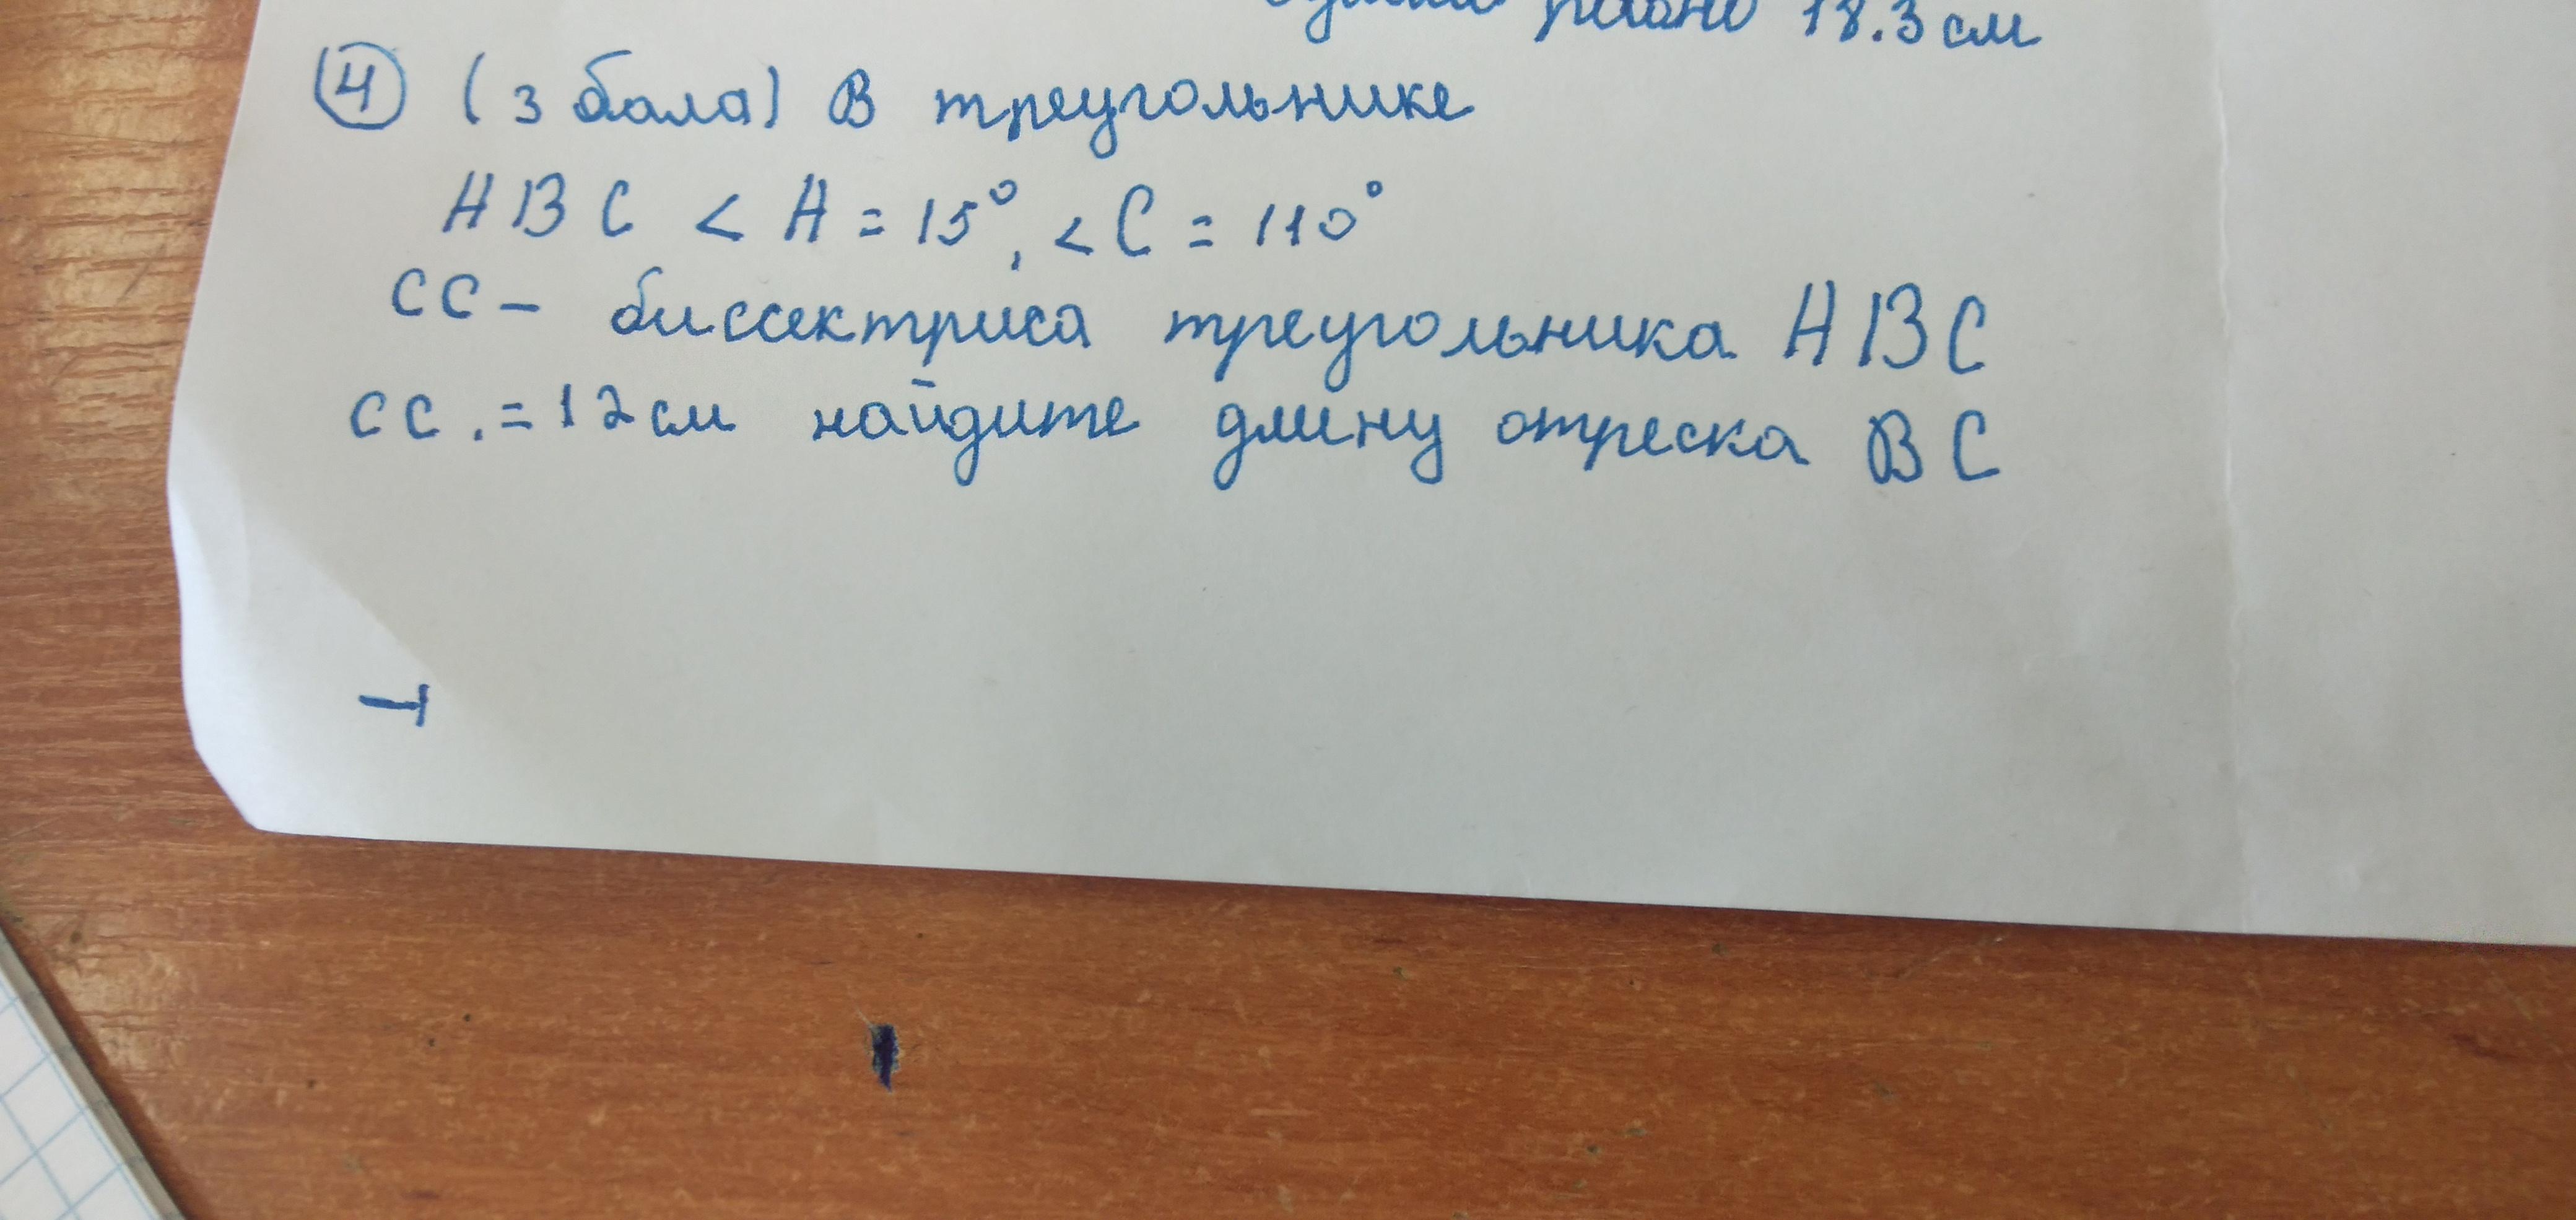 равно 18.3 см
④ (3 бала) В треугольнике
АВС < А = 15°, < С = 110°
СС – биссектриса треугольника АВС
СС. = 12 см найдите длину отреска ВС